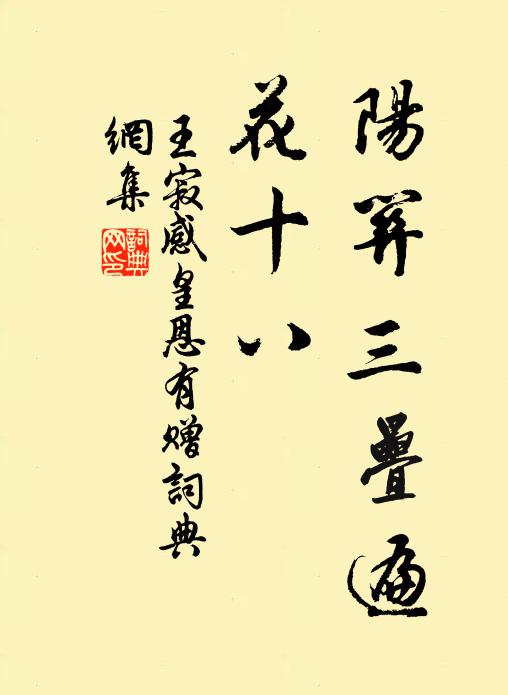 陽關三疊遍
花十八
王寂感皇恩有贈詞典
網集
詞典網印